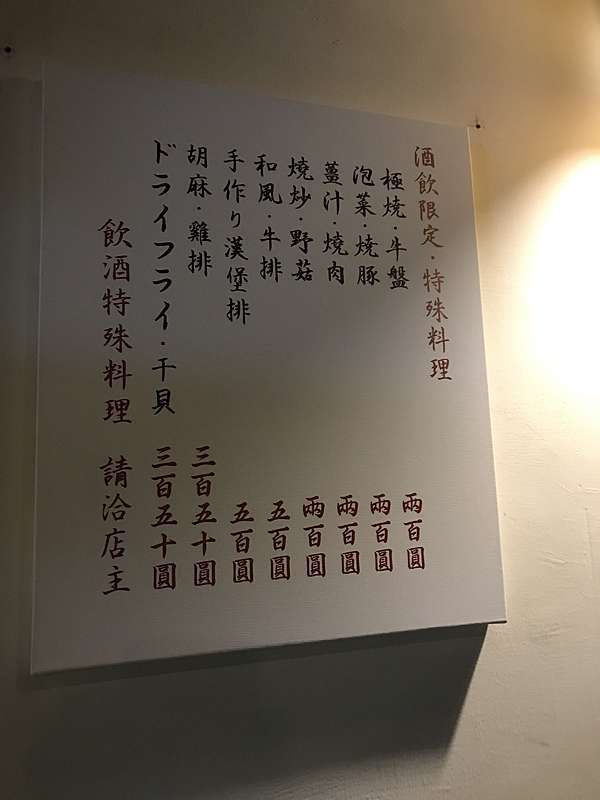 酒飲限定・特殊料理
極燒・牛盤 兩百圓
泡菜・燒豚 兩百圓
薑汁・燒肉 兩百圓
燒炒・野菇 兩百圓
和風・牛排 五百圓
手作り漢堡排 五百圓
胡麻・雞排 三百五十圓
ドライフライ・干貝 三百五十圓
飲酒特殊料理 請洽店主